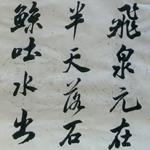 飛泉元在
半天落石
鯨吐水出